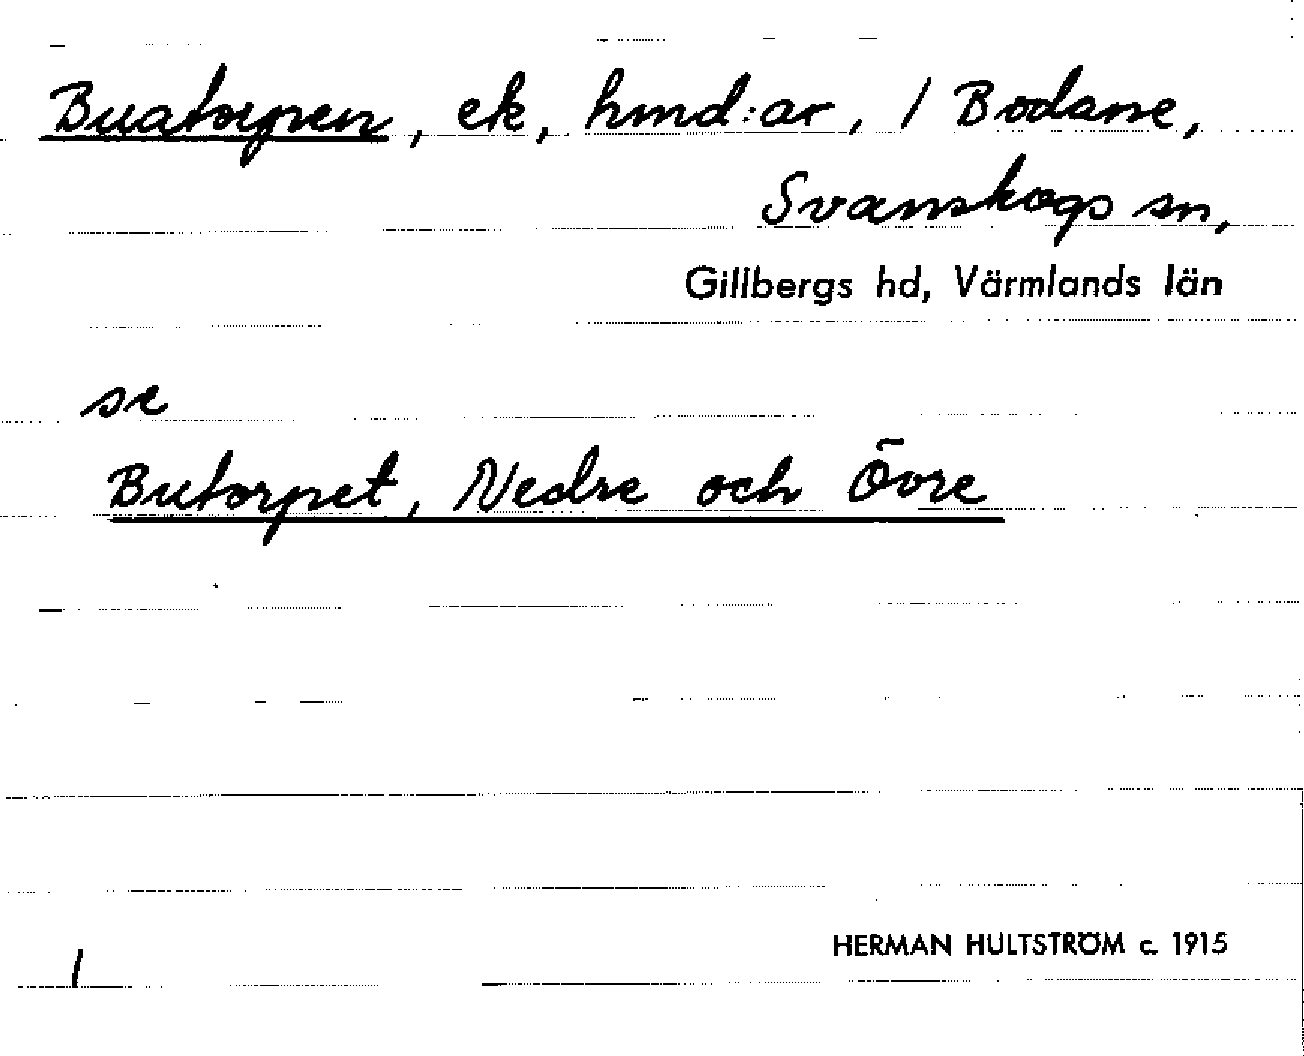 Buatorpen, ek, hmd:ar, / Bodane,
Svanskogs sn,
Gillbergs hd, Värmlands län
se
Butorpet, Nedre och Övre
HERMAN HULTSTRÖM c. 1915
/